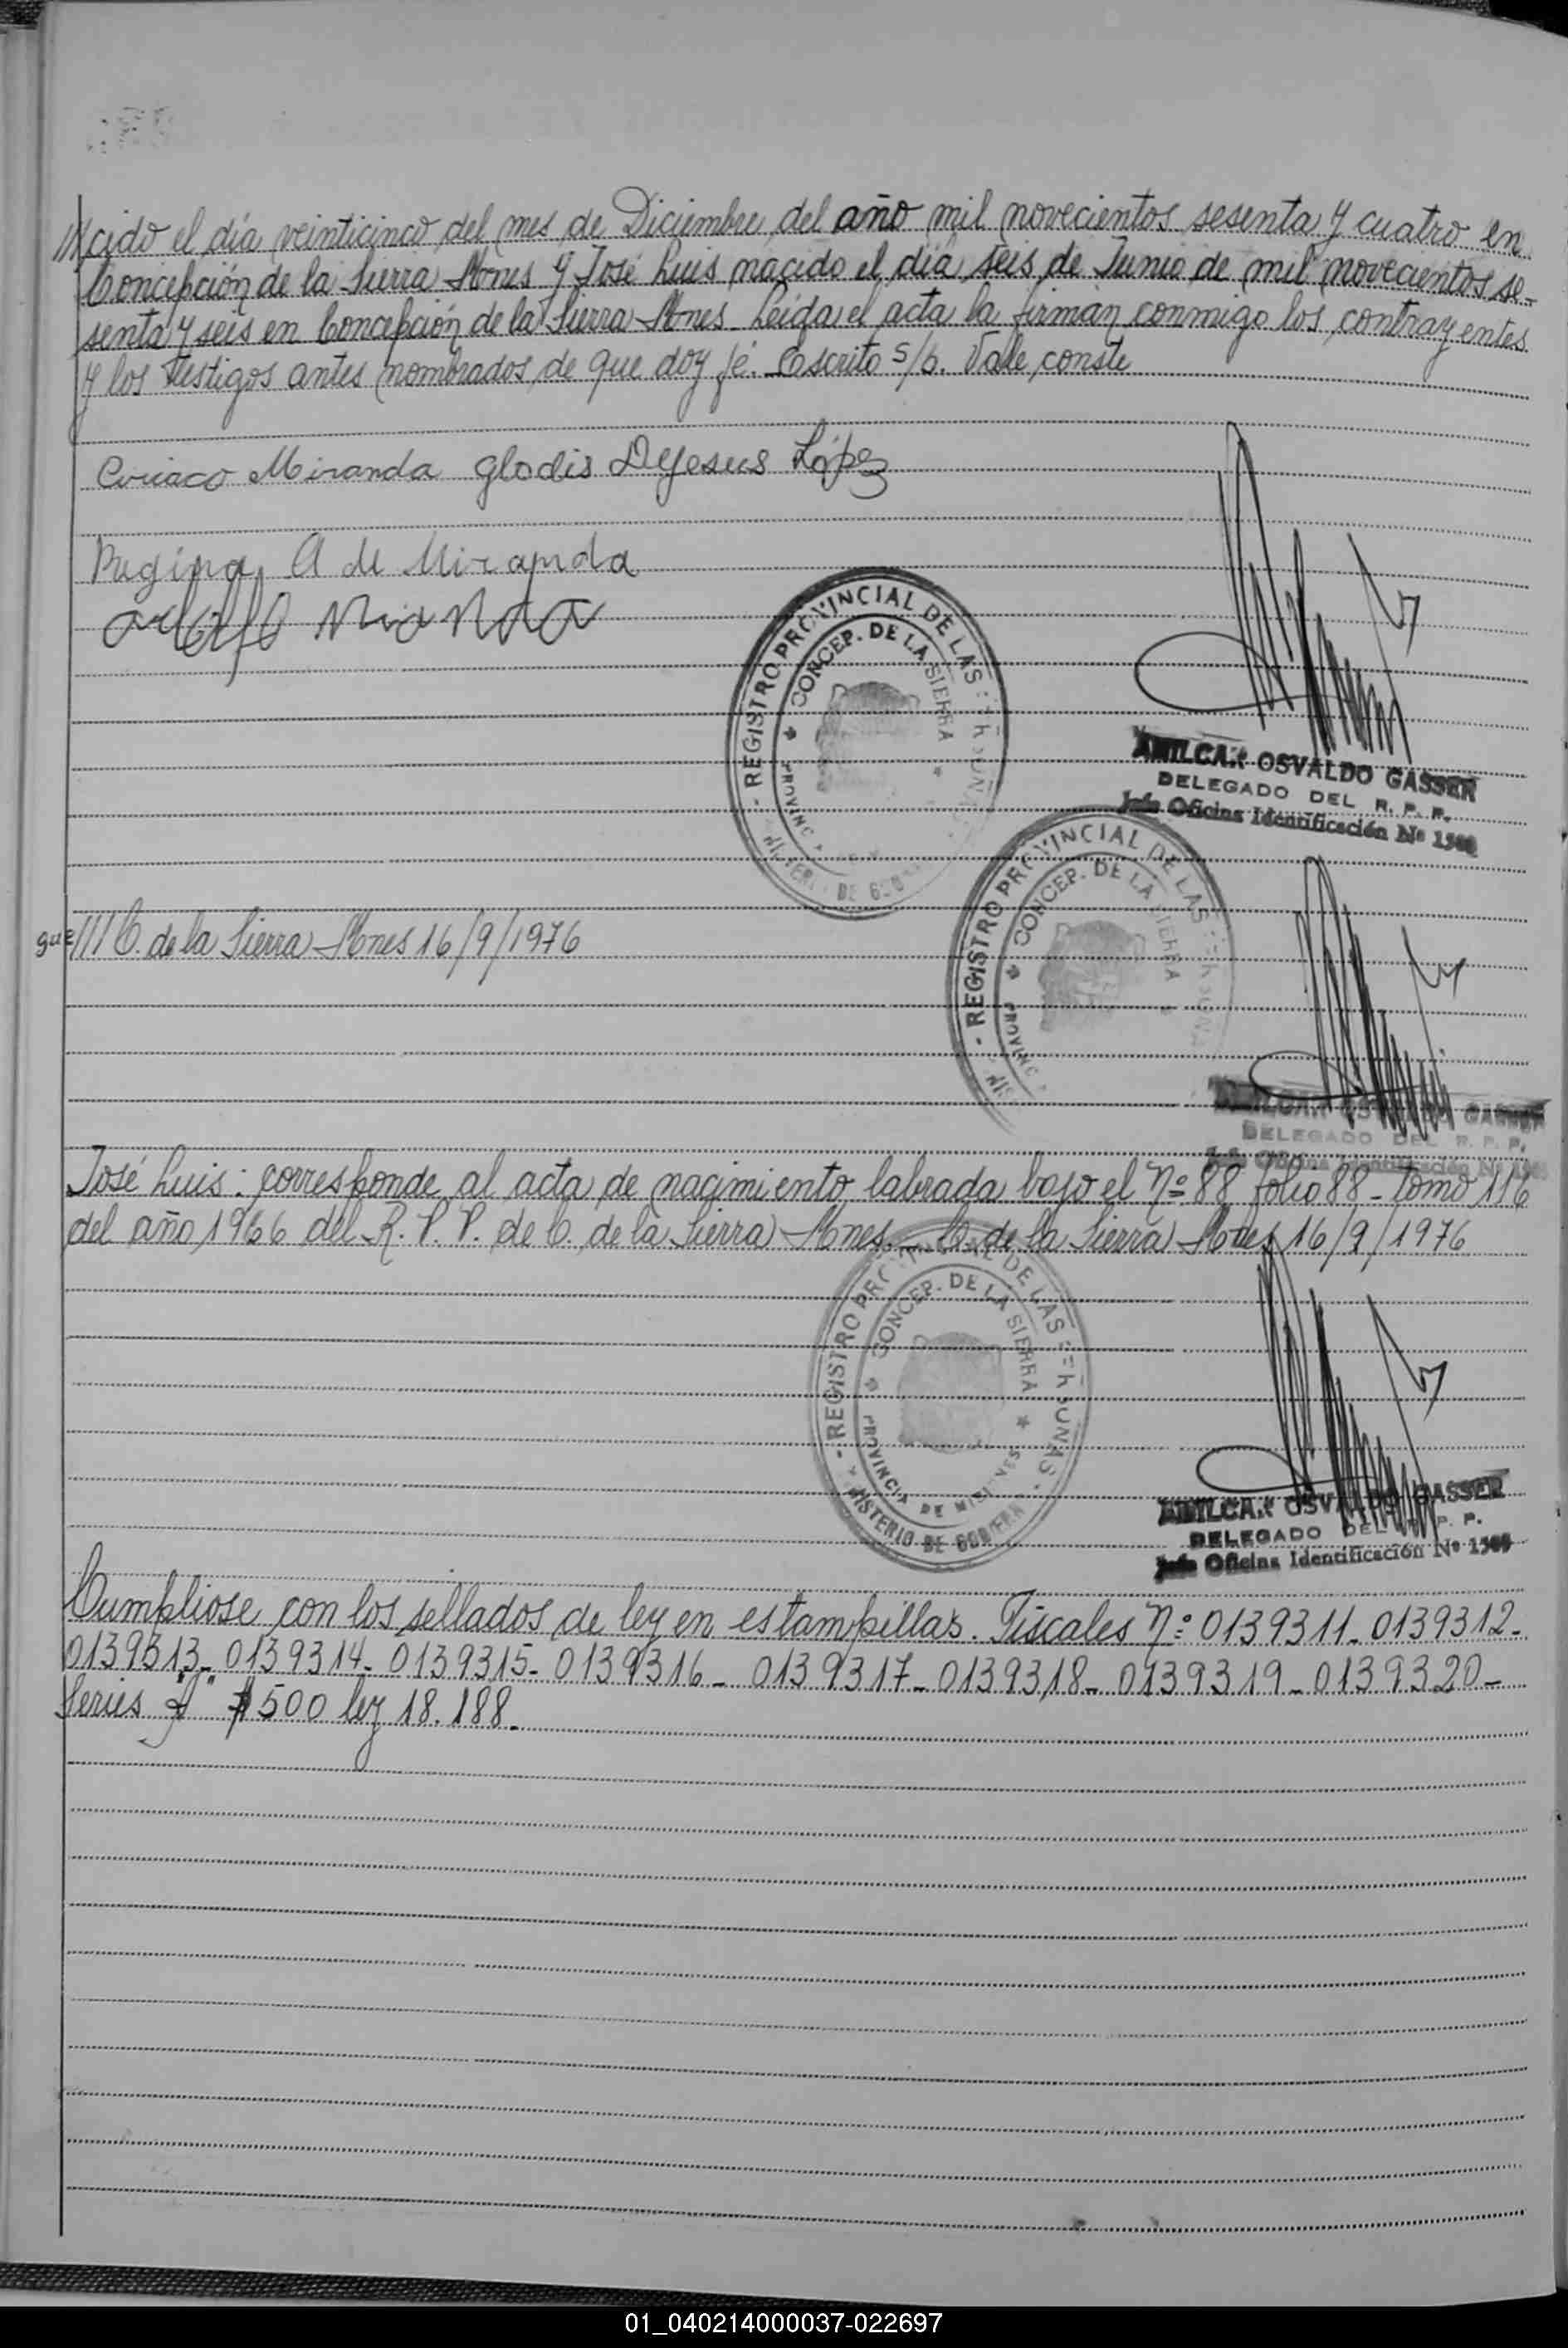 ///cido el día veinticinco del mes de Diciembre del año mil novecientos sesenta y cuatro en
Concepción de la Sierra Mnes y José Luis nacido el día seis de Junio de mil novecientos se-
senta y seis en Concepción de la Sierra Mnes. Leída el acta la firman conmigo los contrayentes
y los testigos antes nombrados, de que doy fé. Escrito s/b. Vale, conste
Ciriaco Miranda Glodis DeJesus López
Regina A de Miranda
Miranda
- REGISTRO PROVINCIAL DE LAS
CONCEP. DE LA SIERRA
AMILCAR OSVALDO GASSER
DELEGADO DEL R. P. P.
Jefe Oficina Identificación Nº
- REGISTRO PROVINCIAL DE LAS
CONCEP. DE LA SIERRA
que /// C. de la Sierra Mnes 16/9/1976
AMILCAR OSVALDO GASSER
DELEGADO DEL R. P. P.
Jefe Oficina Identificación Nº
José Luis: corresponde al acta de nacimiento labrada bajo el Nº 88 folio 88 - tomo 116
del año 1966 del R. P. P. de C. de la Sierra Mnes. - C. de la Sierra Mnes 16/9/1976
- REGISTRO PROVINCIAL DE LAS PERSONAS -
CONCEP. DE LA SIERRA
PROVINCIA DE MISIONES
MINISTERIO DE GOBIERNO
AMILCAR OSVALDO GASSER
DELEGADO DEL R. P. P.
Jefe Oficina Identificación Nº
Cumpliose con los sellados de ley en estampillas. Fiscales Nº: 0139311- 0139312-
0139313- 0139314- 0139315- 0139316- 0139317- 0139318- 0139319- 0139320-
Series "A" $500 ley 18.188.
01_040214000037-022697